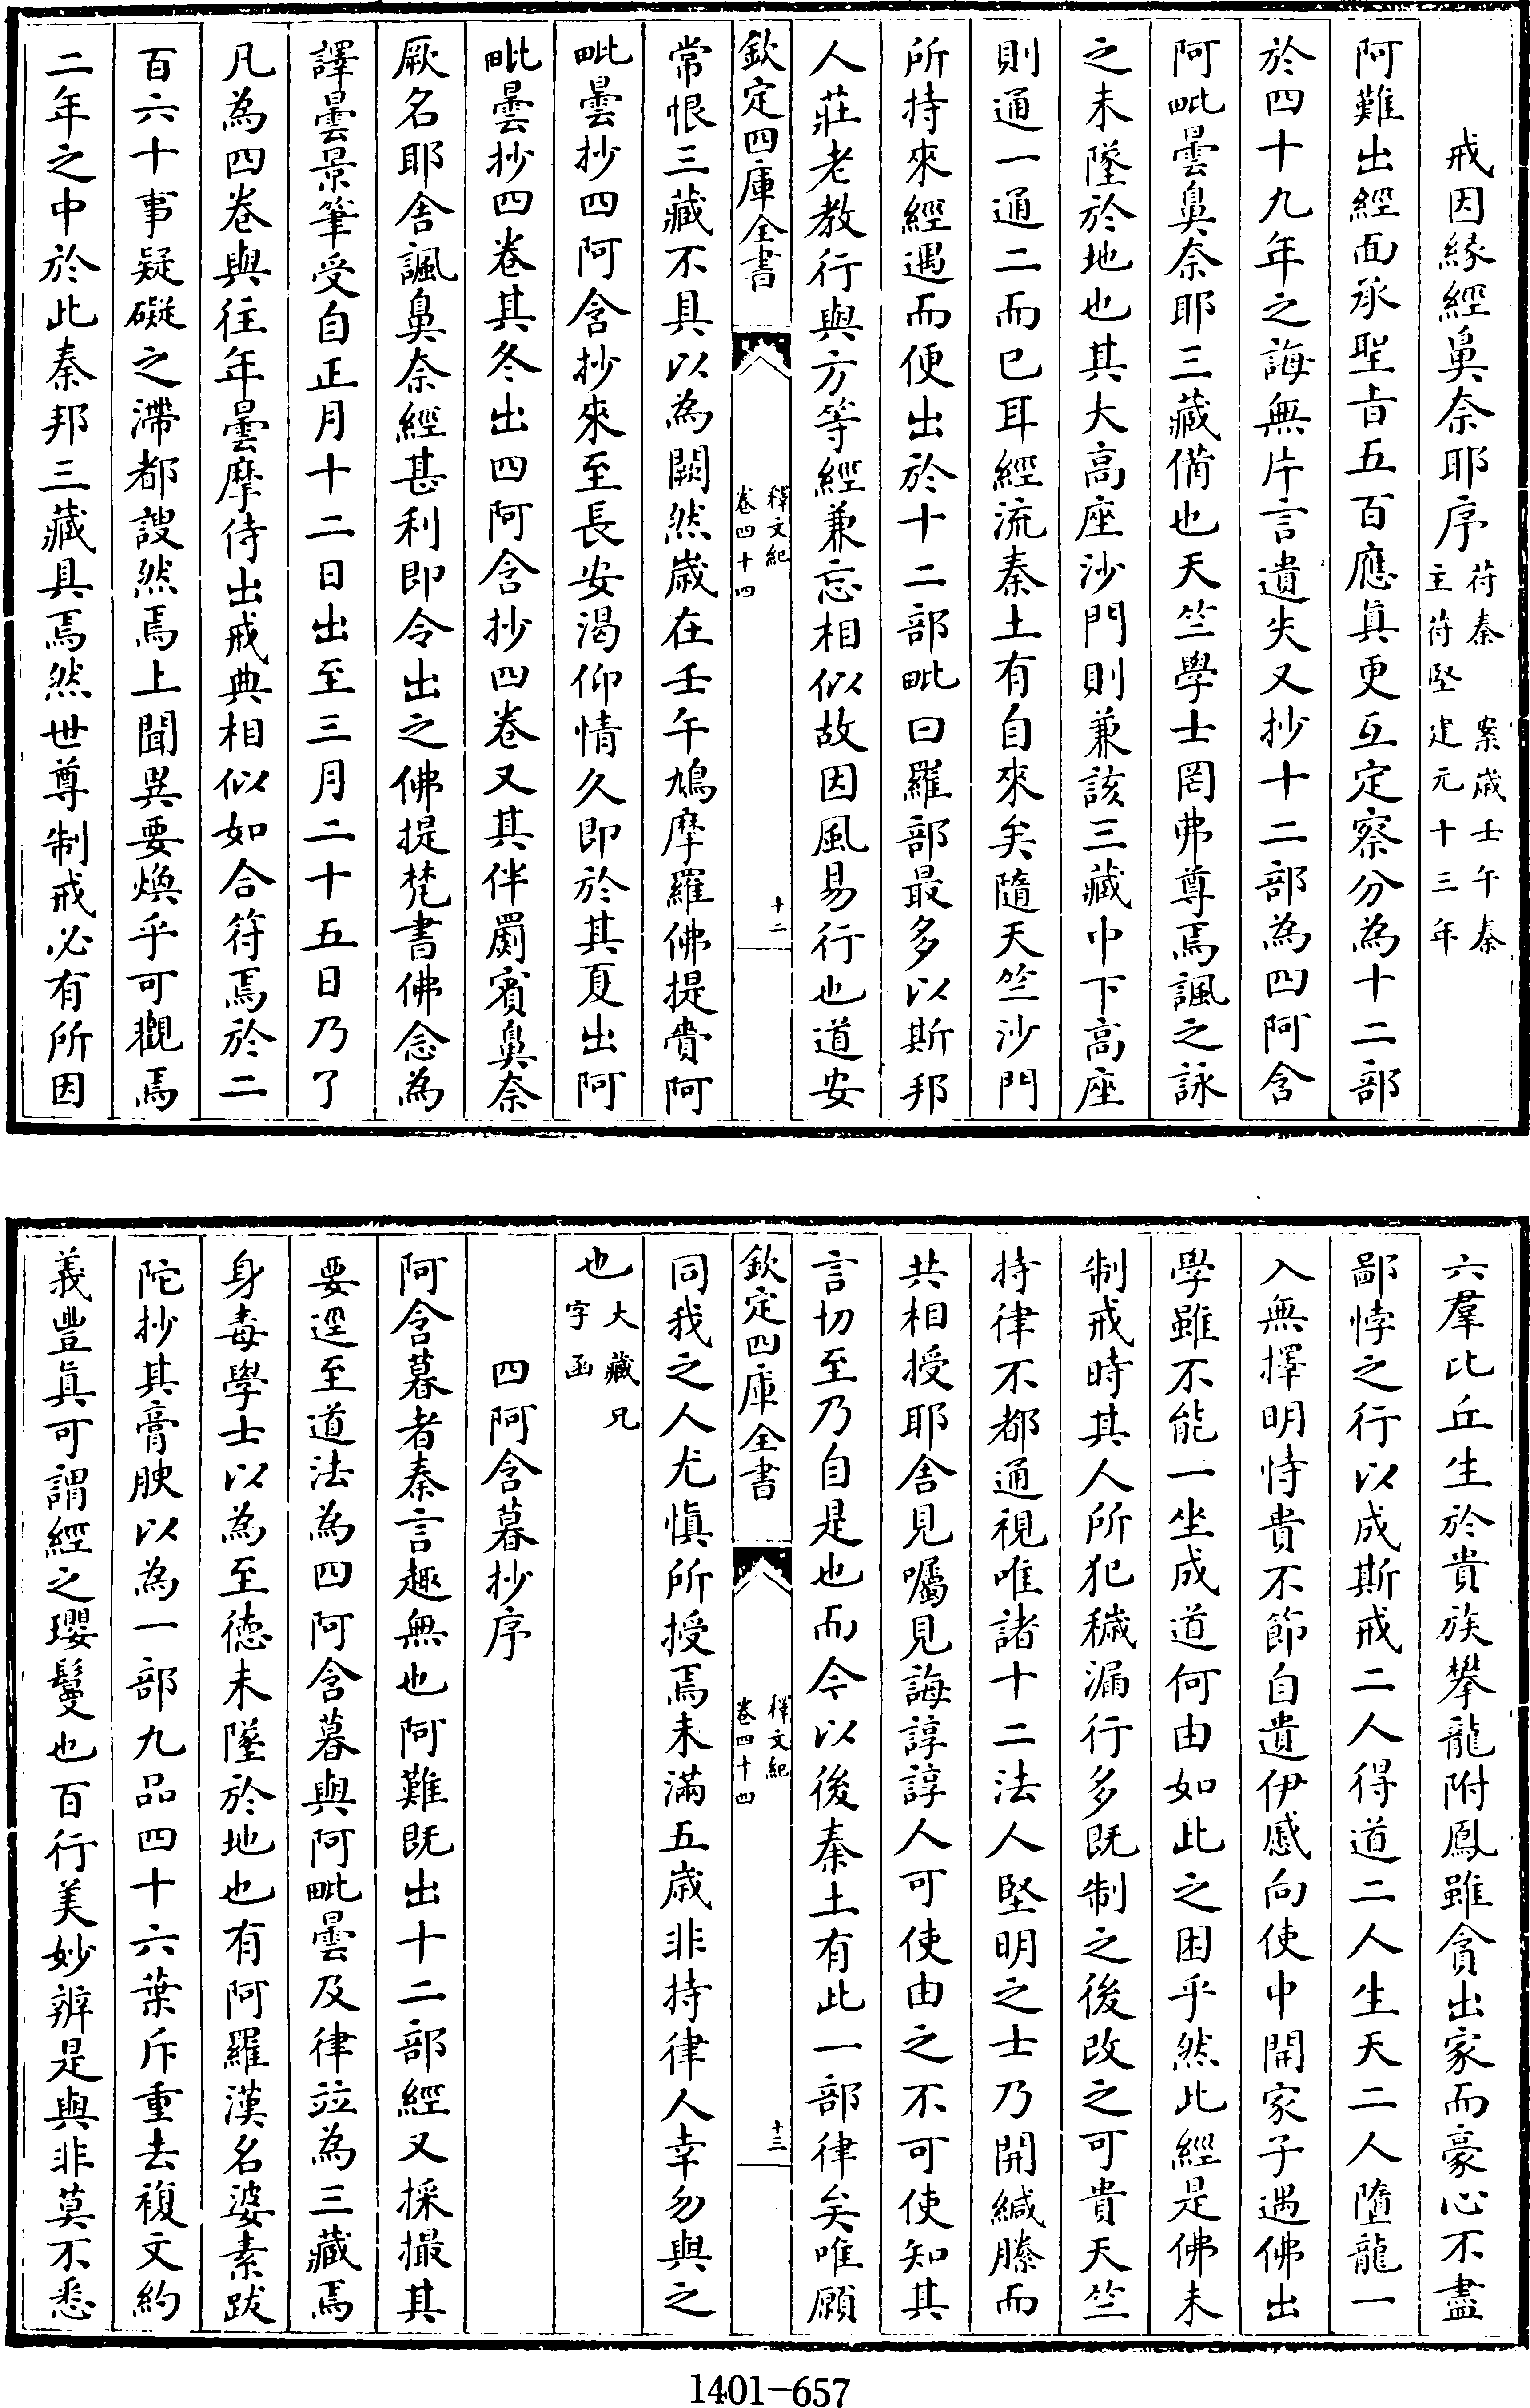 戒因緣經鼻奈耶序苻秦　案歲壬午秦
主苻堅建元十三年
阿難出經面承聖旨五百應眞更互定察分為十二部
於四十九年之誨無片言遺失又抄十二部為四阿含
阿毗曇鼻奈耶三藏備也天竺學士罔弗尊焉諷之詠
之未墜於地也其大高座沙門則兼該三藏中下高座
則通一通二而已耳經流秦土有自來矣隨天竺沙門
所持來經遇而便出於十二部毗曰羅部最多以斯邦
人莊老教行與方等經兼忘相似故因風易行也道安
欽定四庫全書
釋文紀
卷四十四
十二
常恨三藏不具以為闕然歲在壬午鳩摩羅佛提賷阿
毗曇抄四阿含抄來至長安渴仰情久即於其夏出阿
毗曇抄四卷其冬出四阿含抄四卷又其伴罽賓鼻奈
厥名耶舍諷鼻奈經甚利即令出之佛提梵書佛念為
譯曇景筆受自正月十二日出至三月二十五日乃了
凡為四卷與往年曇摩侍出戒典相似如合符焉於二
百六十事疑礙之滯都謏然焉上聞異要煥乎可觀焉
二年之中於此秦邦三藏具焉然世尊制戒必有所因
六羣比丘生於貴族攀龍附鳳雖貪出家而豪心不盡
鄙悖之行以成斯戒二人得道二人生天二人墮龍一
入無擇明恃貴不節自遺伊慼向使中開家子遇佛出
學雖不能一坐成道何由如此之困乎然此經是佛未
制戒時其人所犯穢漏行多既制之後改之可貴天竺
持律不都通視唯諸十二法人堅明之士乃開緘縢而
共相授耶舍見囑見誨諄諄人可使由之不可使知其
言切至乃自是也而今以後秦土有此一部律矣唯願
欽定四庫全書
釋文紀
卷四十四
十三
同我之人尤慎所授焉未滿五歲非持律人幸勿與之
也大藏兄
字函
四阿含暮抄序
阿含暮者秦言趣無也阿難既出十二部經又採撮其
要逕至道法為四阿含暮與阿毗曇及律竝為三藏焉
身毒學士以為至德未墜於地也有阿羅漢名婆素跋
陀抄其膏腴以為一部九品四十六葉斥重去複文約
義豐眞可謂經之瓔鬘也百行美妙辨是與非莫不悉
1401-657